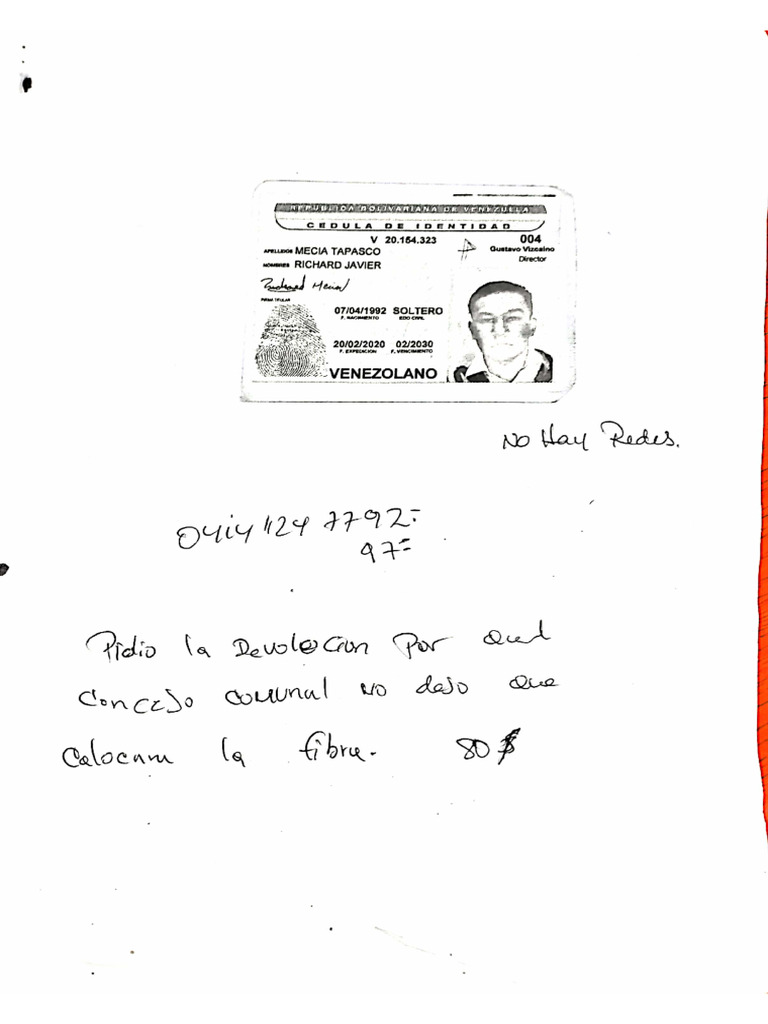 REPUBLICA BOLIVARIANA DE VENEZUELA
CEDULA DE IDENTIDAD
V 20.154.323 004
APELLIDOS MECIA TAPASCO Gustavo Vizcaino
Director
NOMBRES RICHARD JAVIER
Richard Mecia
FIRMA TITULAR
07/04/1992 SOLTERO
F. NACIMIENTO EDO CIVIL
20/02/2020 02/2030
F. EXPEDICION F. VENCIMIENTO
VENEZOLANO
No Hay Redes.
0414 124 7792=
97=
Pidio la Devolocion Por
Concejo comunal no dejo que
Calocara la fibra. 80 $